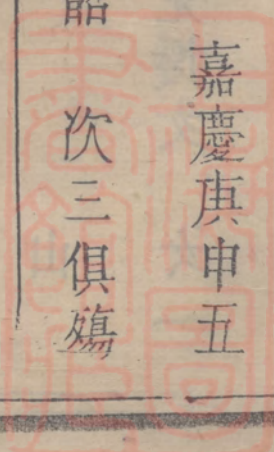 嘉慶庚申五
韶 次三俱殤